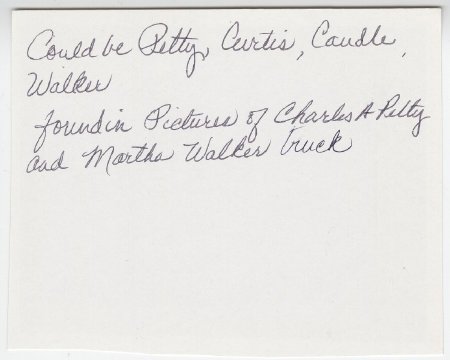 Could be Petty, Curtis, Caudle,
Walker
found in Pictures of Charles A Petty
and Martha Walker truck